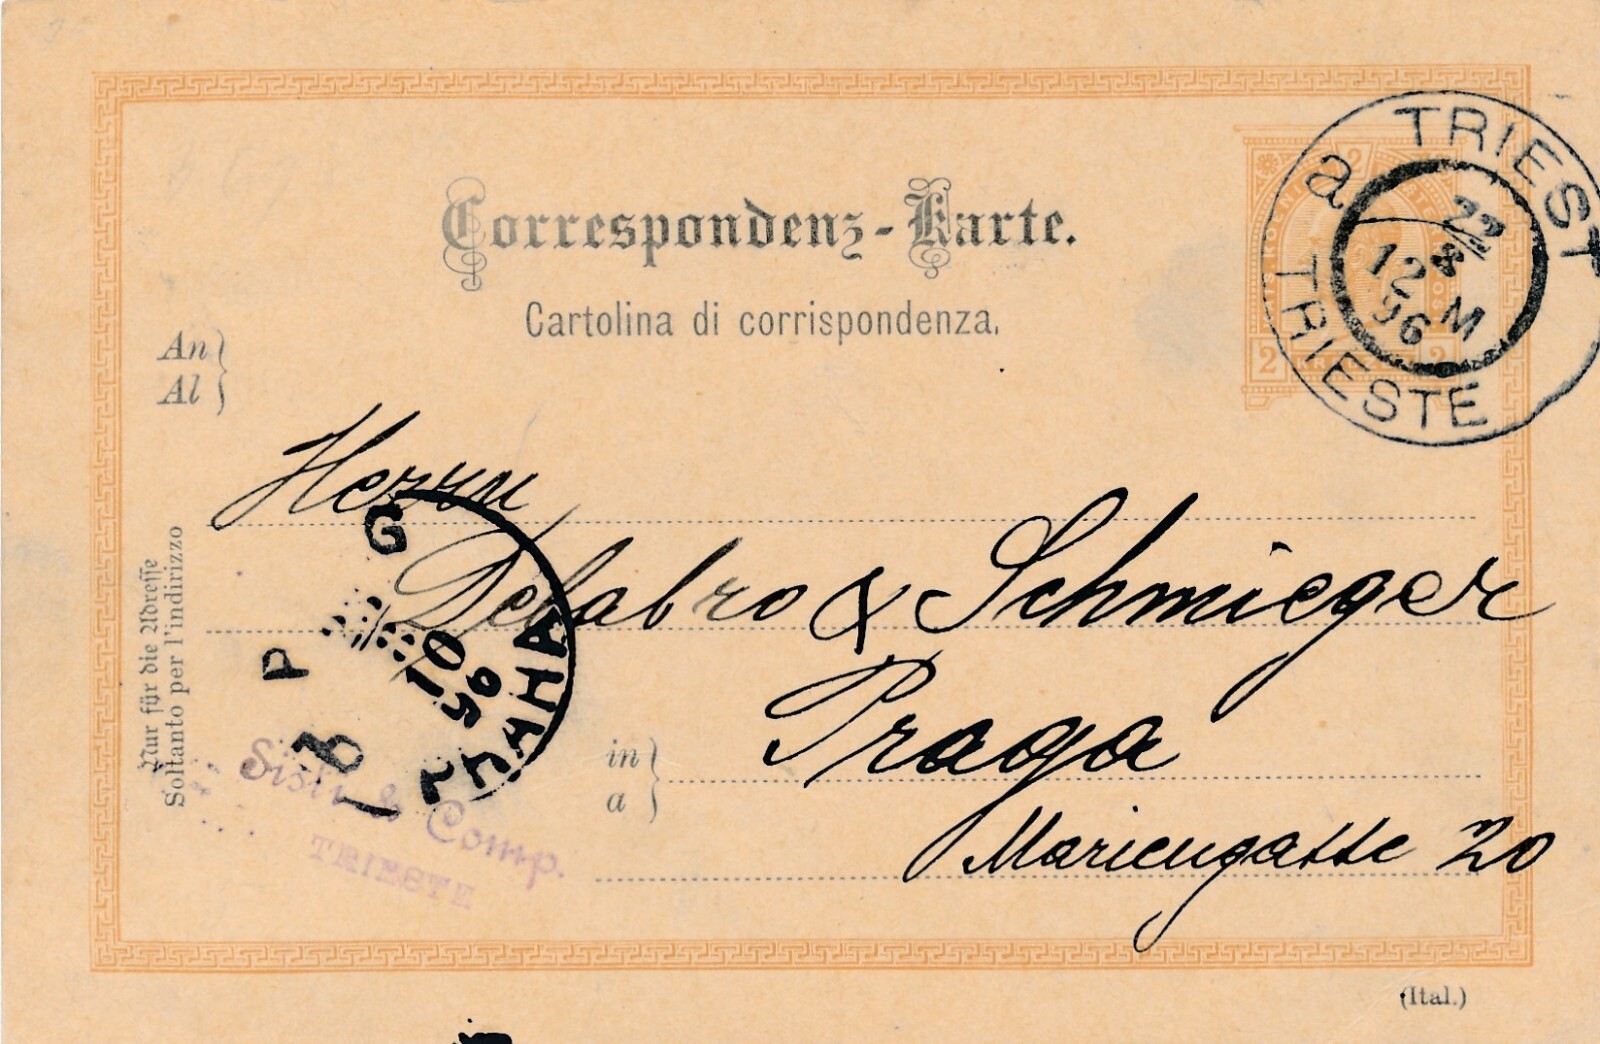 Correspondenz-Karte.
Cartolina di corrispondenza.
TRIEST
a
22
8
12 M
96
TRIESTE
2
2
2
An
Al
Herrn
Delabro & Schmieger
in
a
Praga
Mariengasse 20
Nur für die Adresse
Soltanto per l'indirizzo
P
G
10
96
PRAHA
& Comp.
TRIESTE
(Ital.)